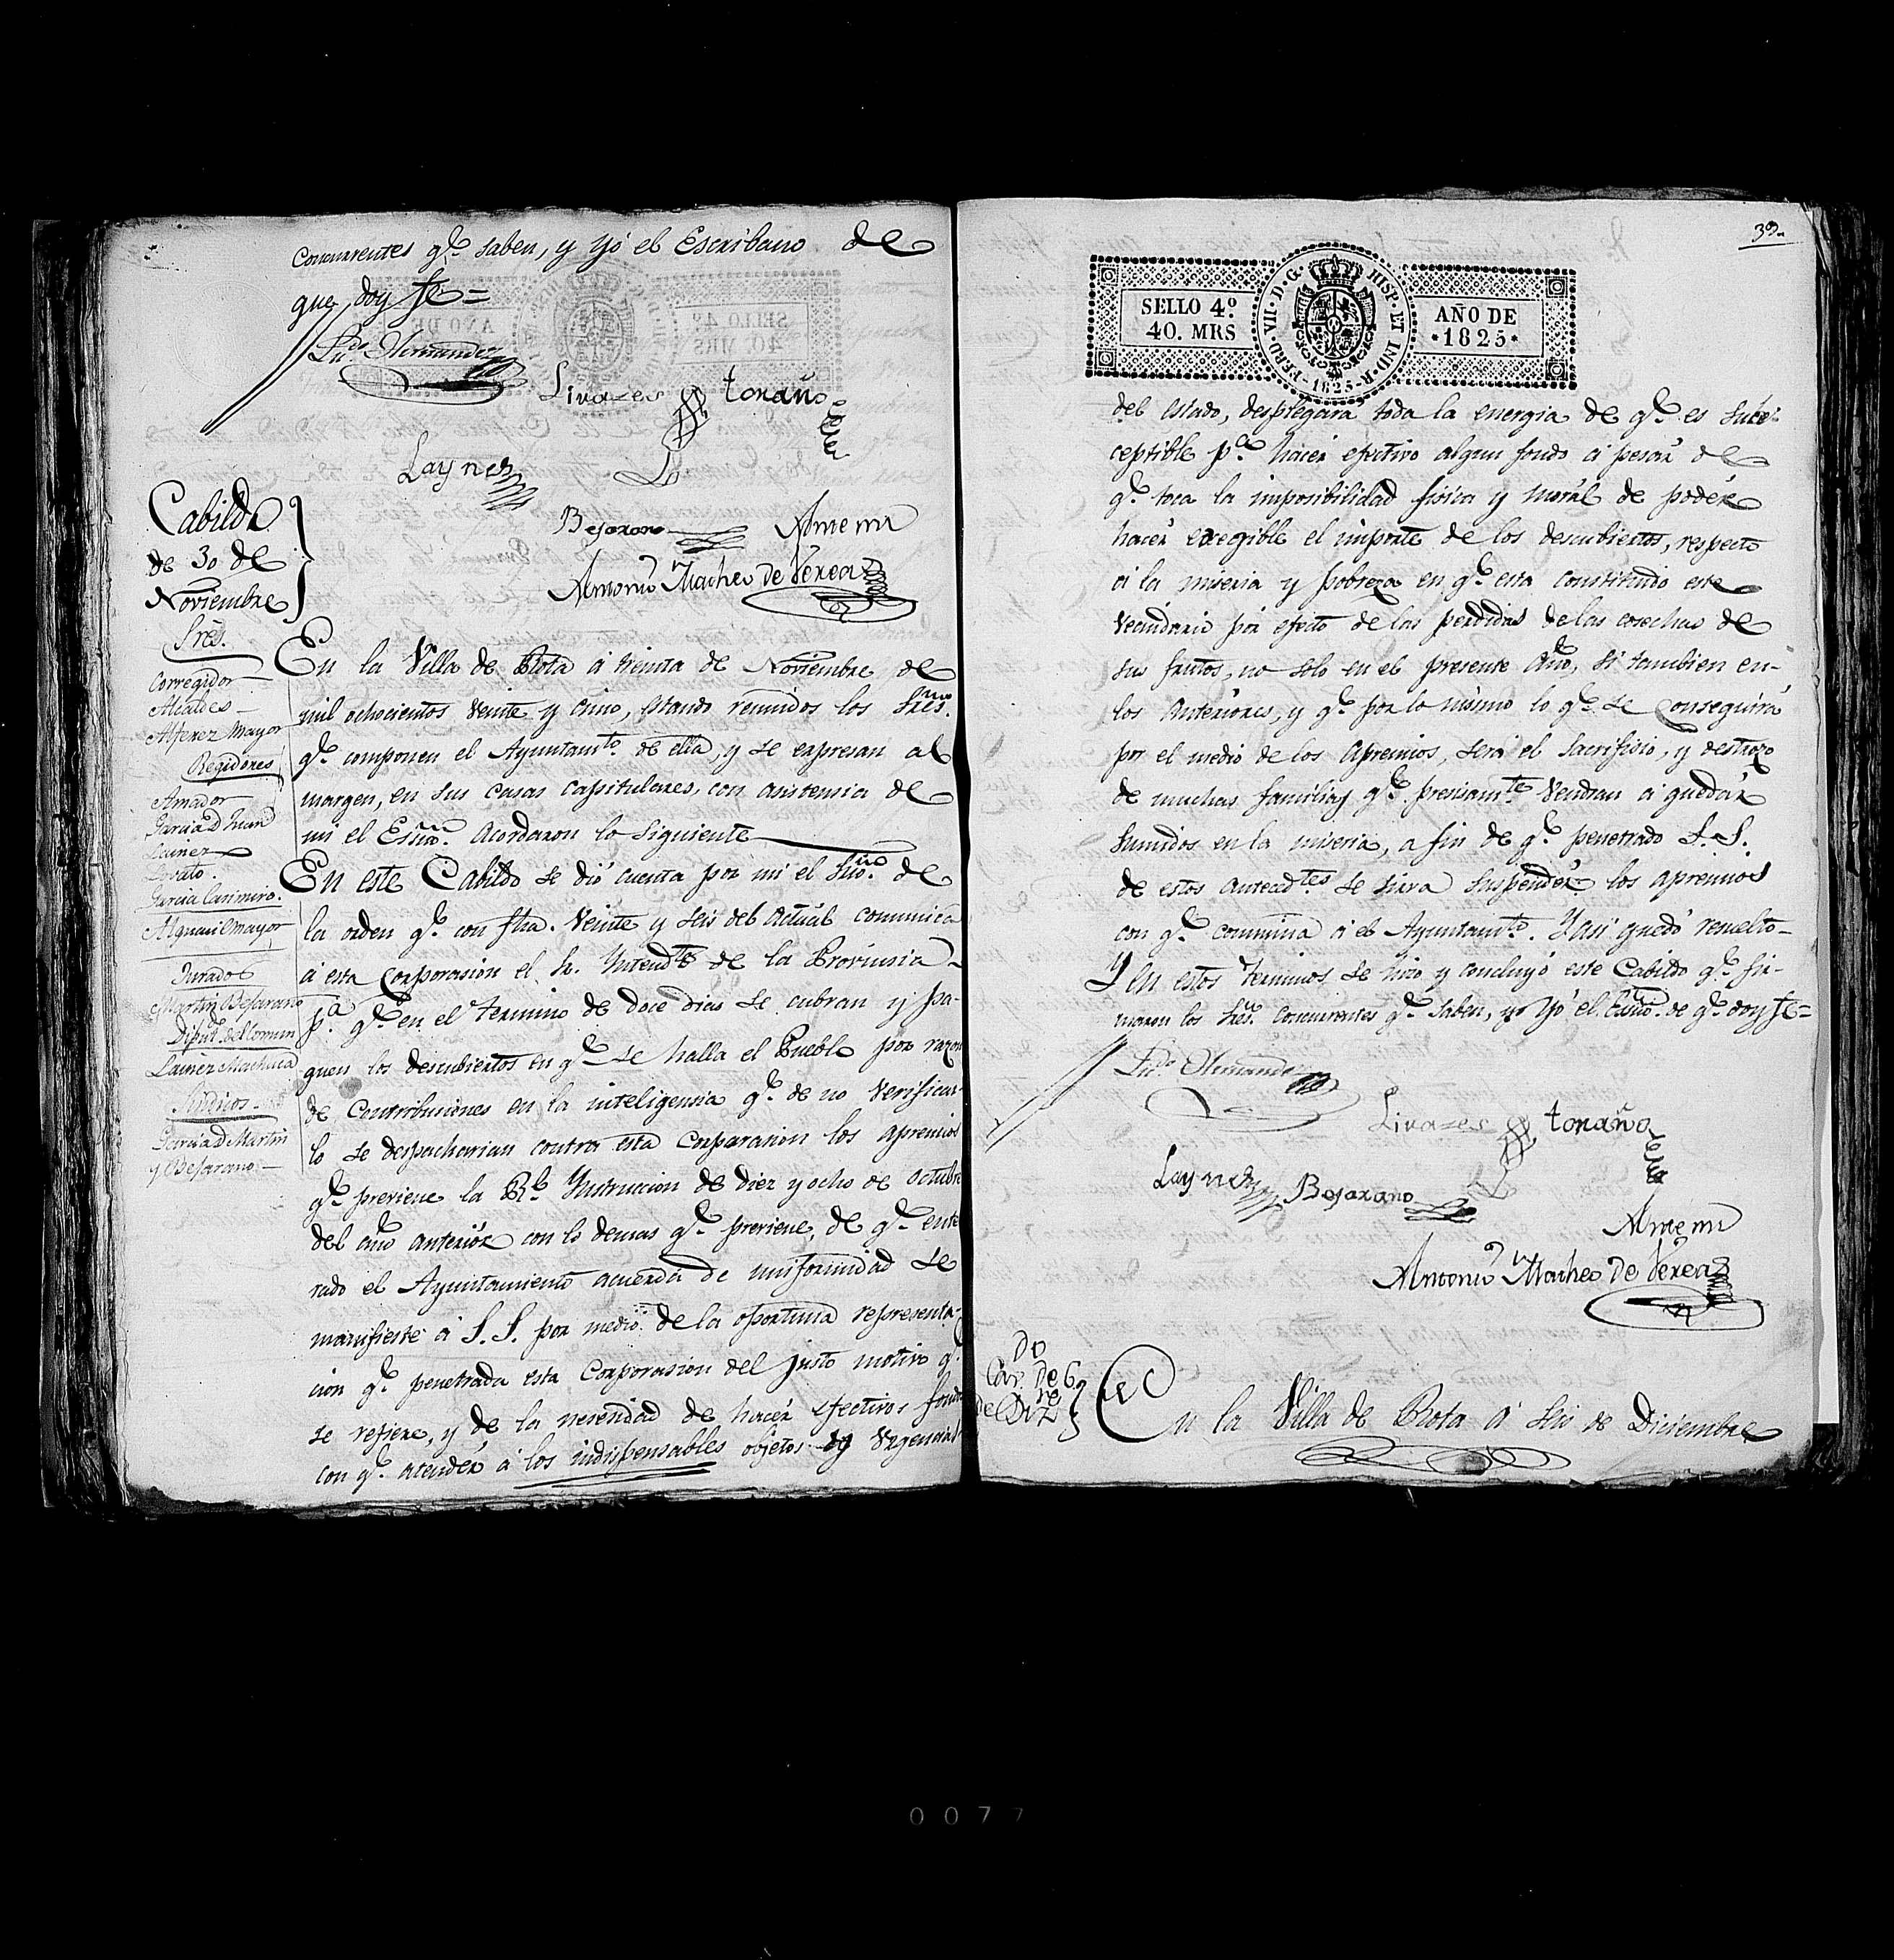 Concurrentes q.e saben, y Yo el Escribano de
que doy fe=
Ldo. Hernandez
Livares
toraño
Laynez
Bejarano
Ante mi
Antonio Matheo de Verea
Cabildo
de 30 de
Noviembre
Sres.
Corregidor
Alcaldes
Alferez Mayor
Regidores
Amador
Garcia d Juan
Lainez
Lovato.
Garcia Casimiro.
Alguacil mayor
Jurados
Martin Bejarano
Diput.s del Comun
Lainez Machuca
Sindicos
Garcia d Martin
y Bejarano
En la Villa de Rota á treinta de Noviembre de
mil ochocientos veinte y cinco, estando reunidos los Sres.
q.e componen el Ayuntam.to de ella, y se expresan al
margen, en sus casas capitulares, con asistensia de
mi el Essno. Acordaron lo siguiente
En este Cabildo se dió cuenta por mi el Srio. de
la orden q.e con fha. veinte y seis del actual comunica
á esta Corporasion el Sr. Yntend.te de la Provinsia
p.a q.e en el termino de doce dias se cubran y pa-
guen los descubiertos en q.e se halla el Pueblo por razon
de Contribusiones en la inteligensia q.e de no verificar-
lo se despacharian contra esta Corporasion los apremios
q.e previene la R.l Ynstruccion de diez y ocho de octubre
del año anteriór con lo demas q.e previene, de q.e ente
rado el Ayuntamiento acuerda de uniformidad se
manifieste á S. S. por medio de la oportuna representa-
cion q.e penetrada esta Corporasion del justo motivo q.e
se refiere, y de la nesesidad de hacér efectivos fondos
con q.e atendér á los indispensables objetos y urgencias
39.
SELLO 4º
40. MRS
FERD. VII. D. G. HISP. ET IND. R. 1825
AÑO DE
1825
del estado, desplegará toda la energia de q.e es suce-
ceptible p.a hacer efectivo algun fondo á pesár de
q.e toca la imposibilidad fisica y morál de podér
hacér exegible el importe de los descubiertos, respecto
á la miseria y pobreza en q.e esta constituido este
Vecindario por efecto de las perdidas de las cosechas de
sus frutos, no solo en el presente año, si tambien en
los anterióres, y q.e por lo mismo lo q.e se conseguirá
por el medio de los apremios, será el sacrifisio, y destrozo
de muchas familias q.e presisam.te vendran á quedár
sumidos en la miseria, a fin de q.e penetrado S. S.
de estos anteced.tes se sirva suspendér los apremios
con q.e conmina á el Ayuntam.to. Y asi quedó resuelto
Y en estos terminos se hizo y concluyó este Cabildo q.e fir-
maron los Sres. concurrentes q.e saben, y Yo el Essno. de q.e doy fe=
Ldo. Hernandez
Livares
toraño
Laynez
Bejarano
Ante mi
Antonio Matheo de Verea
Do
Cav. de 6
de Diz.re
En la Villa de Rota á seis de Diciembre
0077